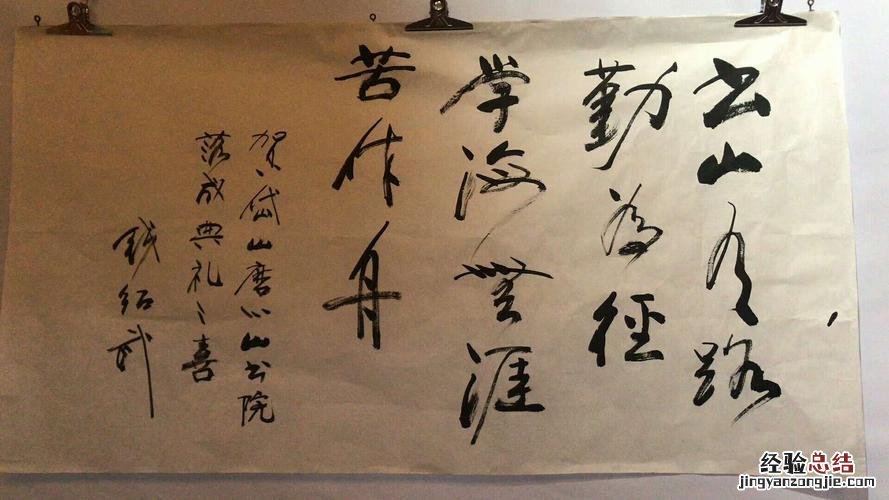 书山有路
勤为径
学海無涯
苦作舟
贺岱山磨心山书院
落成典礼之喜
钱绍武
经验总结
jingyanzongjie.com